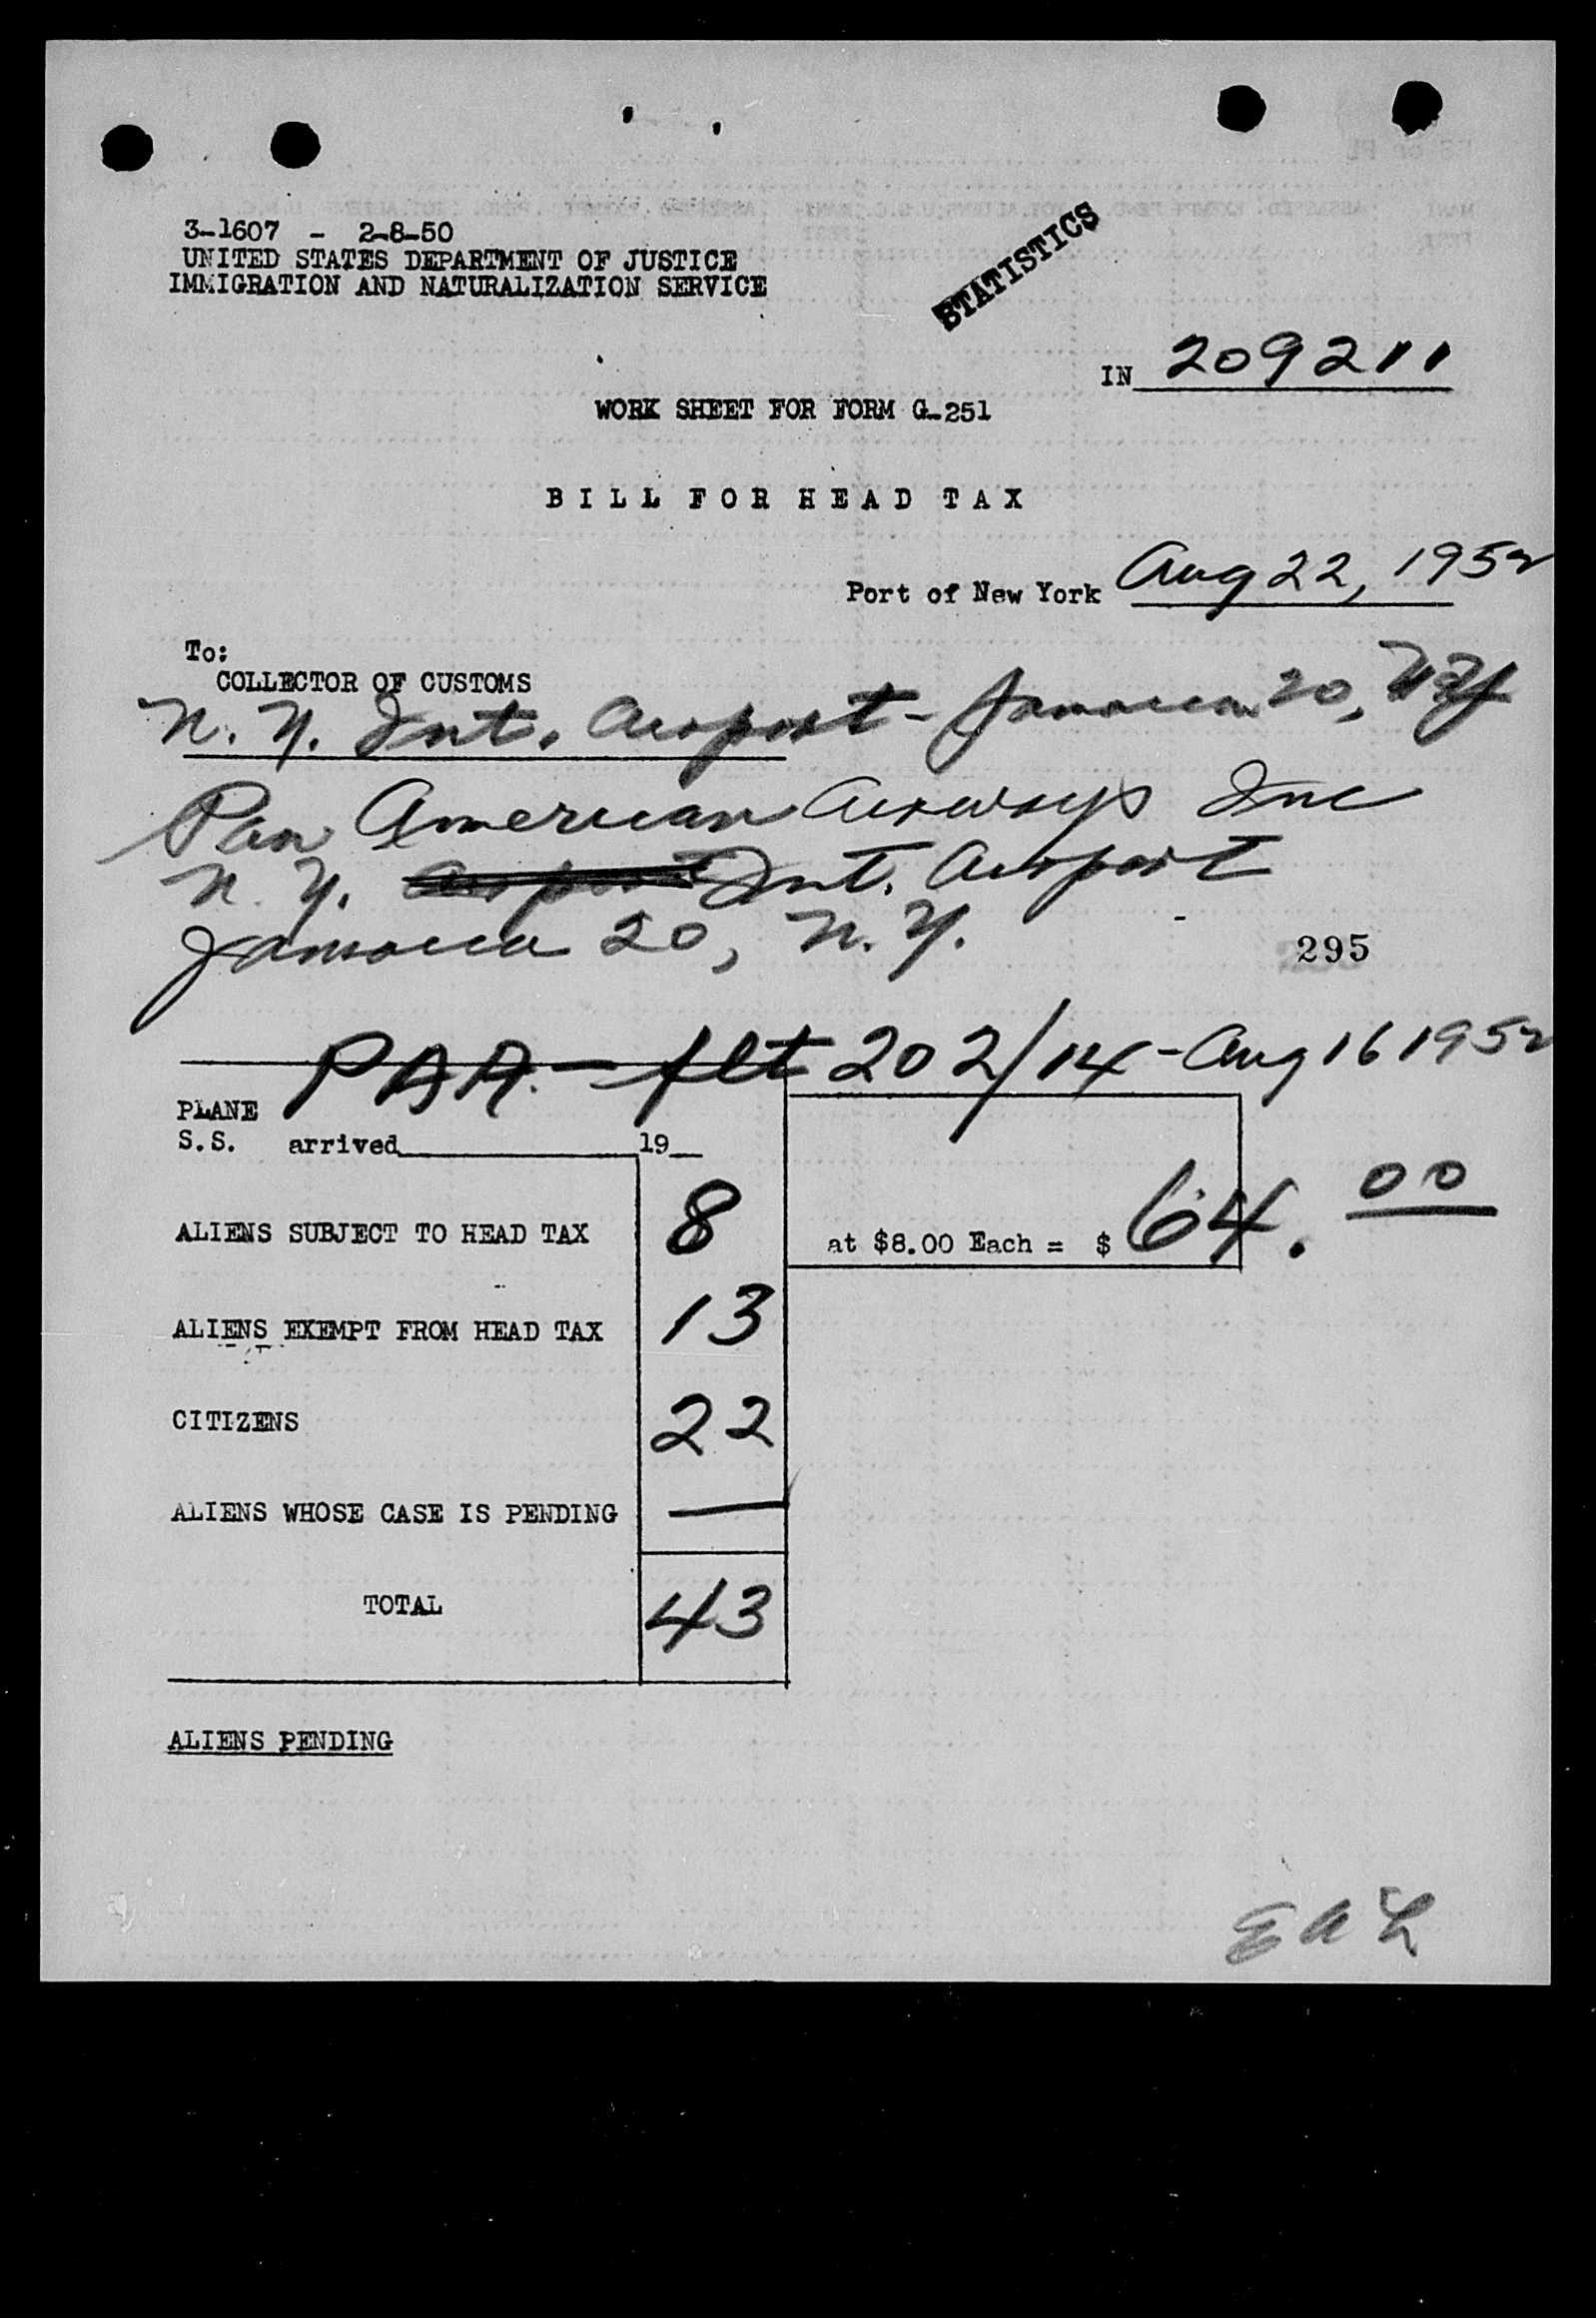 3-1607 - 2-8-50
UNITED STATES DEPARTMENT OF JUSTICE
IMMIGRATION AND NATURALIZATION SERVICE
STATISTICS
IN 209211
WORK SHEET FOR FORM G-251
BILL FOR HEAD TAX
Port of New York Aug 22, 1952
To:
COLLECTOR OF CUSTOMS
N.Y. Int. Airport - Jamaica 20, N.Y.
Pan American Airways Inc
N.Y. Airport Int. Airport
Jamaica 20, N.Y.
295
PAA. - flt 202/14 - Aug 16 1952
PLANE
S.S. arrived 19
ALIENS SUBJECT TO HEAD TAX 8 at $8.00 Each = $ 64.00
ALIENS EXEMPT FROM HEAD TAX 13
CITIZENS 22
ALIENS WHOSE CASE IS PENDING —
TOTAL 43
ALIENS PENDING
EAL